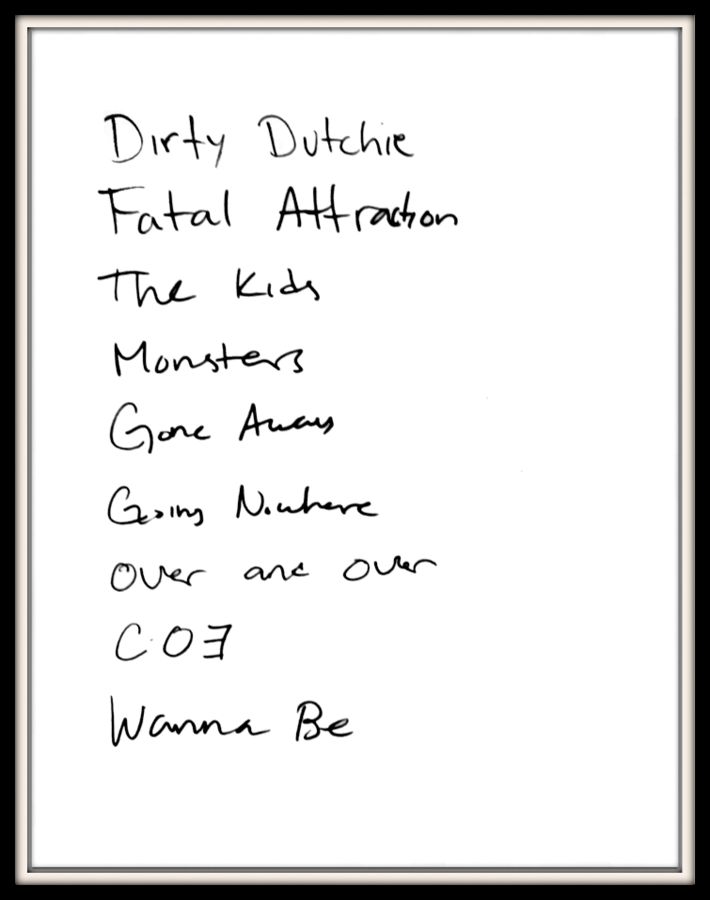 Dirty Dutchie
Fatal Attraction
The Kids
Monsters
Gone Away
Going Nowhere
Over and over
C.O3
Wanna Be